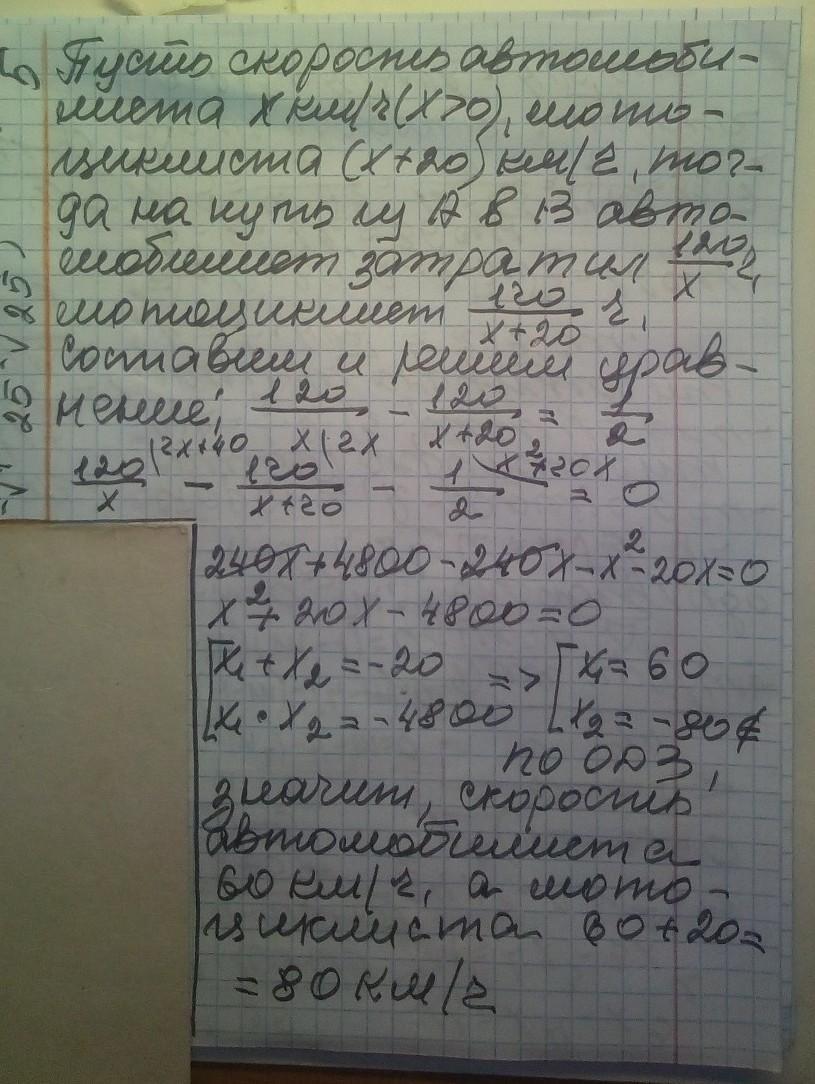 5 Пусть скорость автомоби-
листа x км/ч (x>0), мото-
циклиста (x+20) км/ч, тог-
да на путь из А в В авто-
мобилист затратил 120/x ч,
мотоциклист 120/(x+20) ч,
составим и решим урав-
нение: 120/x - 120/(x+20) = 1/2
120/x |2x+40 - 120/(x+20) |2x - 1/2 |x²+20x = 0
240x+4800-240x-x²-20x=0
x²+20x-4800=0
[x₁+x₂=-20 => [x₁=60
[x₁·x₂=-4800 [x₂=-80 ∉
по ОДЗ,
значит, скорость
автомобилиста
60 км/ч, а мото-
циклиста 60+20=
=80 км/ч
√25)
25